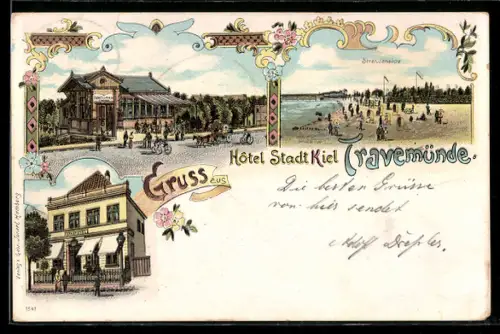 Strandweide
Hôtel Stadt Kiel Travemünde.
Gruss aus
Die besten Grüsse
von hier sendet
Adolf
1241